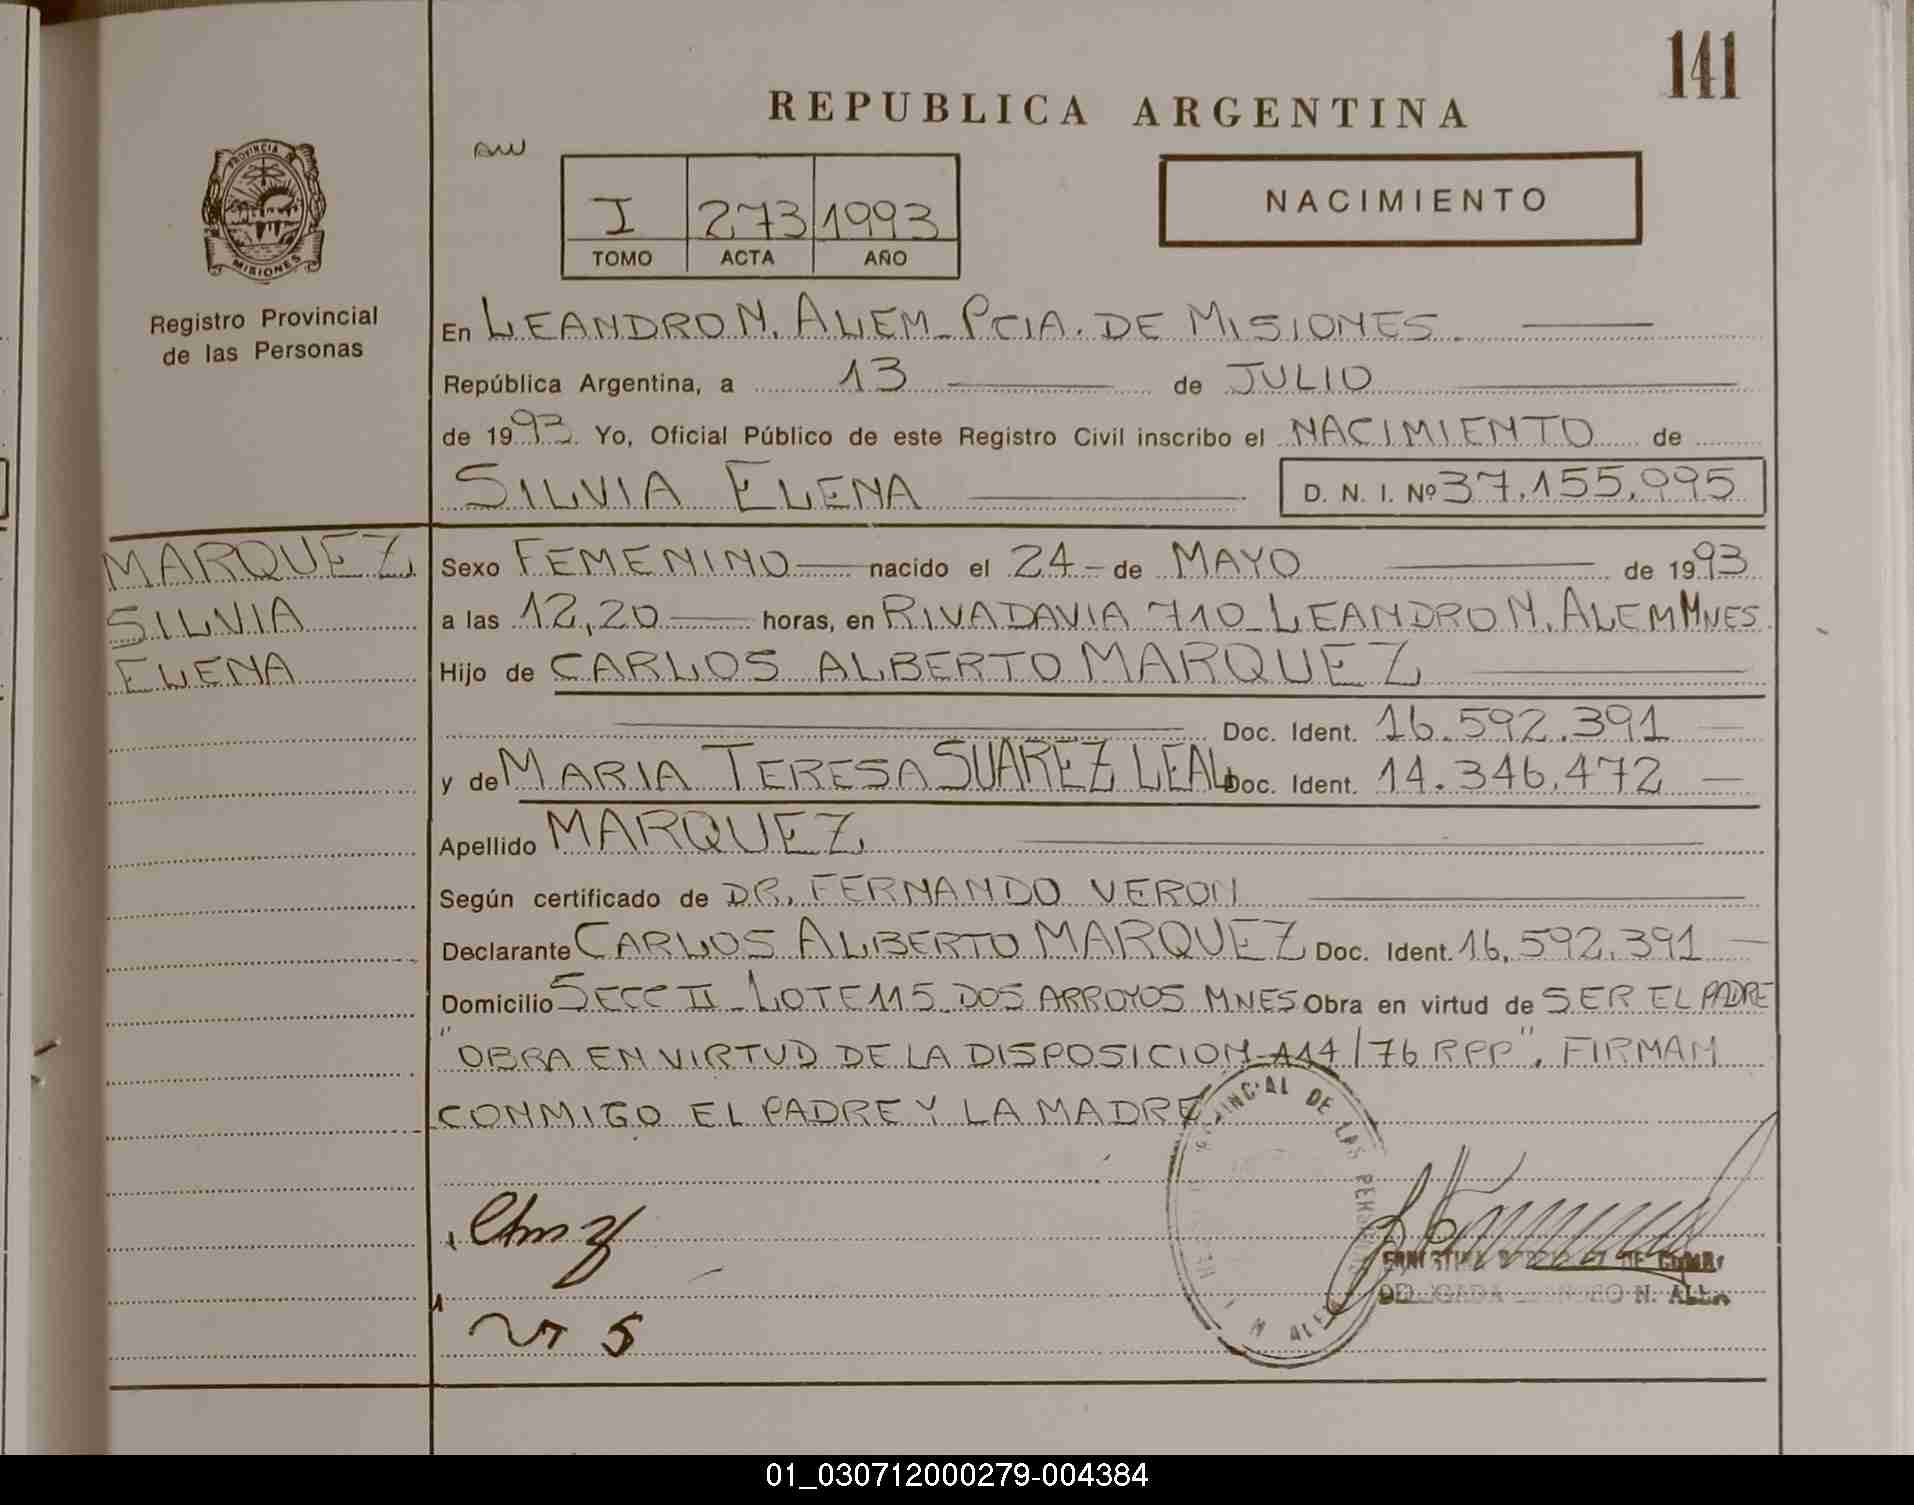 141
REPUBLICA ARGENTINA
PROVINCIA DE
MISIONES
Registro Provincial
de las Personas
I 273 1993
TOMO ACTA AÑO
NACIMIENTO
En LEANDRO N. ALEM_PCIA. DE MISIONES.
República Argentina, a 13 de JULIO
de 1993. Yo, Oficial Público de este Registro Civil inscribo el NACIMIENTO de
SILVIA ELENA D. N. I. Nº 37.155.995
MARQUEZ
SILVIA
ELENA
Sexo FEMENINO nacido el 24 de MAYO de 1993
a las 12,20 horas, en RIVADAVIA 710_LEANDRO N. ALEM MNES
Hijo de CARLOS ALBERTO MARQUEZ
Doc. Ident. 16.592.391
y de MARIA TERESA SUAREZ LEAL Doc. Ident. 14.346.472
Apellido MARQUEZ
Según certificado de DR. FERNANDO VERON
Declarante CARLOS ALBERTO MARQUEZ Doc. Ident. 16.592.391
Domicilio SECC II_LOTE 115_DOS ARROYOS MNES Obra en virtud de SER EL PADRE
"OBRA EN VIRTUD DE LA DISPOSICION 114/76 RPP", FIRMAN
CONMIGO EL PADRE Y LA MADRE
DE LAS
DE
N. ALEM
01_030712000279-004384